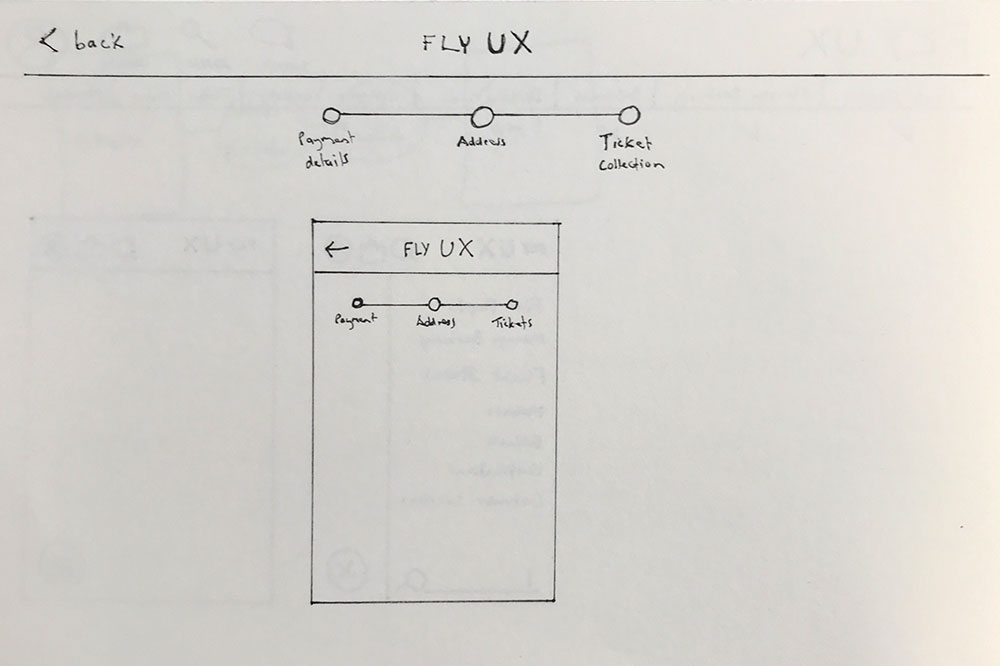 < back
FLY UX
Payment details
Address
Ticket Collection
← FLY UX
Payment
Address
Tickets